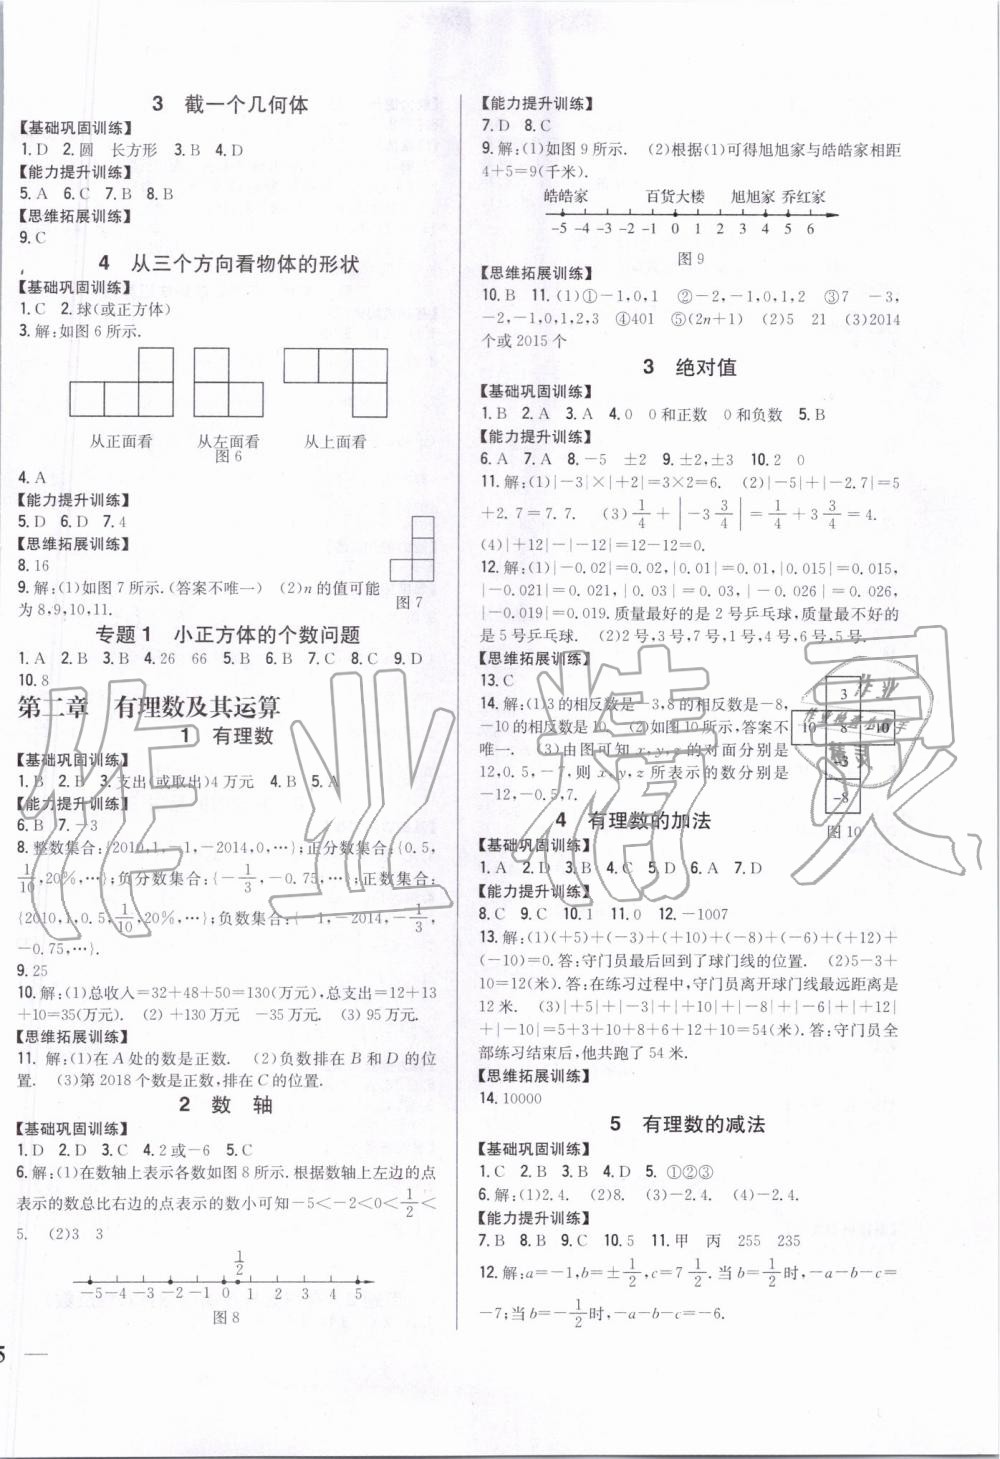 3 截一个几何体
【基础巩固训练】
1.D 2.圆 长方形 3.B 4.D
【能力提升训练】
5.A 6.C 7.B 8.B
【思维拓展训练】
9.C
4 从三个方向看物体的形状
【基础巩固训练】
1.C 2.球(或正方体)
3.解:如图6所示.
从正面看 从左面看 从上面看
图6
4.A
【能力提升训练】
5.D 6.D 7.4
【思维拓展训练】
8.16
9.解:(1)如图7所示.(答案不唯一) (2)n的值可能
为8,9,10,11.
图7
专题1 小正方体的个数问题
1.A 2.B 3.B 4.26 66 5.B 6.B 7.C 8.C 9.D
10.8
第二章 有理数及其运算
1 有理数
【基础巩固训练】
1.B 2.B 3.支出(或取出)4万元 4.B 5.A
【能力提升训练】
6.B 7.-3
8.整数集合:{2010,1,-1,-2014,0,…};正分数集合:{0.5,
1/10,20%,…};负分数集合:{-1/3,-0.75,…};正数集合:
{2010,1,0.5,1/10,20%,…};负数集合:{-1,-2014,-1/3,
-0.75,…}.
9.25
10.解:(1)总收入=32+48+50=130(万元),总支出=12+13
+10=35(万元). (2)+130万元 -35万元. (3)95万元.
【思维拓展训练】
11.解:(1)在A处的数是正数. (2)负数排在B和D的位
置. (3)第2018个数是正数,排在C的位置.
2 数 轴
【基础巩固训练】
1.D 2.D 3.C 4.2或-6 5.C
6.解:(1)在数轴上表示各数如图8所示.根据数轴上左边的点
表示的数总比右边的点表示的数小可知-5<-2<0<1/2<
5. (2)3 3
1/2
-5 -4 -3 -2 -1 0 1 2 3 4 5
图8
5 —
【能力提升训练】
7.D 8.C
9.解:(1)如图9所示. (2)根据(1)可得旭旭家与皓皓家相距
4+5=9(千米).
皓皓家 百货大楼 旭旭家 乔红家
-5 -4 -3 -2 -1 0 1 2 3 4 5 6
图9
【思维拓展训练】
10.B 11.(1)①-1,0,1 ②-2,-1,0,1,2 ③7 -3,
-2,-1,0,1,2,3 ④401 ⑤(2n+1) (2)5 21 (3)2014
个或2015个
3 绝对值
【基础巩固训练】
1.B 2.A 3.A 4.0 0和正数 0和负数 5.B
【能力提升训练】
6.A 7.A 8.-5 ±2 9.±2,±3 10.2 0
11.解:(1)|-3|×|+2|=3×2=6. (2)|-5|+|-2.7|=5
+2.7=7.7. (3)1/4+|-3 3/4|=1/4+3 3/4=4.
(4)|+12|-|-12|=12-12=0.
12.解:(1)|-0.02|=0.02,|0.01|=0.01,|0.015|=0.015,
|-0.021|=0.021,|0.03|=0.03,|-0.026|=0.026,
|-0.019|=0.019.质量最好的是2号乒乓球,质量最不好的
是5号乒乓球. (2)2号,3号,7号,1号,4号,6号,5号.
【思维拓展训练】
13.C
14.解:(1)3的相反数是-3,8的相反数是-8,
-10的相反数是10. (2)如图10所示,答案不
唯一. (3)由图可知x,y,z的对面分别是
12,0.5,-7,则x,y,z所表示的数分别是
-12,-0.5,7.
3
10 8 -10
-3
-8
图10
4 有理数的加法
【基础巩固训练】
1.A 2.D 3.B 4.C 5.D 6.A 7.D
【能力提升训练】
8.C 9.C 10.1 11.0 12.-1007
13.解:(1)(+5)+(-3)+(+10)+(-8)+(-6)+(+12)+
(-10)=0.答:守门员最后回到了球门线的位置. (2)5-3+
10=12(米).答:在练习过程中,守门员离开球门线最远距离是
12米. (3)|+5|+|-3|+|+10|+|-8|+|-6|+|+12|
+|-10|=5+3+10+8+6+12+10=54(米).答:守门员全
部练习结束后,他共跑了54米.
【思维拓展训练】
14.10000
5 有理数的减法
【基础巩固训练】
1.C 2.B 3.B 4.D 5.①②③
6.解:(1)2.4. (2)8. (3)-2.4. (4)-2.4.
【能力提升训练】
7.B 8.B 9.C 10.5 11.甲 丙 255 235
12.解:a=-1,b=±1/2,c=7 1/2.当b=1/2时,-a-b-c=
-7;当b=-1/2时,-a-b-c=-6.
作业精灵